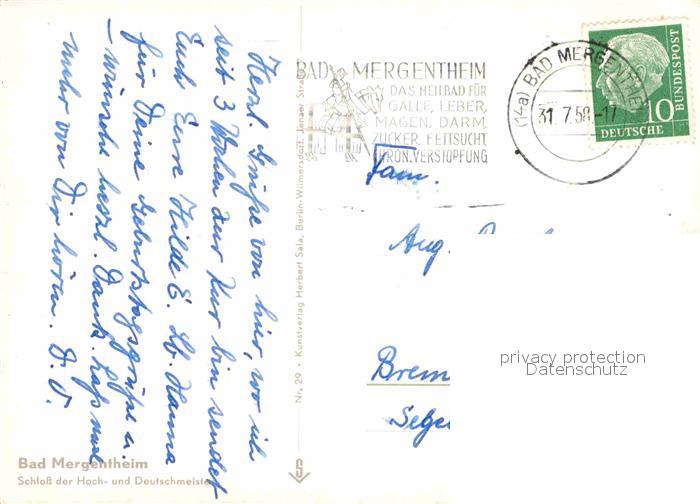 Herzl. Grüße von hier, wo ich
seit 3 Wochen zur Kur bin sendet
Euch Eure Hilde E. Lb. Hanna
für Deine Geburtstagsgrüße u.
– wünsche herzl. Dank. Laß mal
mehr von Dir hören. D. O.
Bad Mergentheim
Schloß der Hoch- und Deutschmeister
Nr. 29 • Kunstverlag Herbert Sala, Berlin-Wilmersdorf, Jenaer Straße
BAD MERGENTHEIM
DAS HEILBAD FÜR
GALLE, LEBER,
MAGEN, DARM,
ZUCKER, FETTSUCHT
CHRON. VERSTOPFUNG
(14a) BAD MERGENTHEIM
31.7.58.-17
10
DEUTSCHE
BUNDESPOST
Fam.
Aug.
Brem
privacy protection
Datenschutz